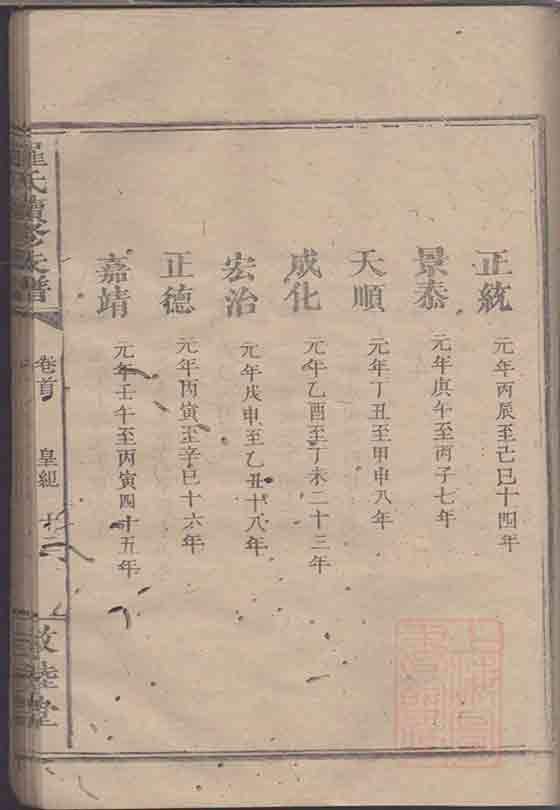 正統 元年丙辰至己巳十四年
景泰 元年庚午至丙子七年
天順 元年丁丑至甲申八年
成化 元年乙酉至丁未二十三年
宏治 元年戊申至乙丑十八年
正德 元年丙寅至辛巳十六年
嘉靖 元年壬午至丙寅四十五年
羅氏續修族譜
卷首
皇紀
敦睦堂